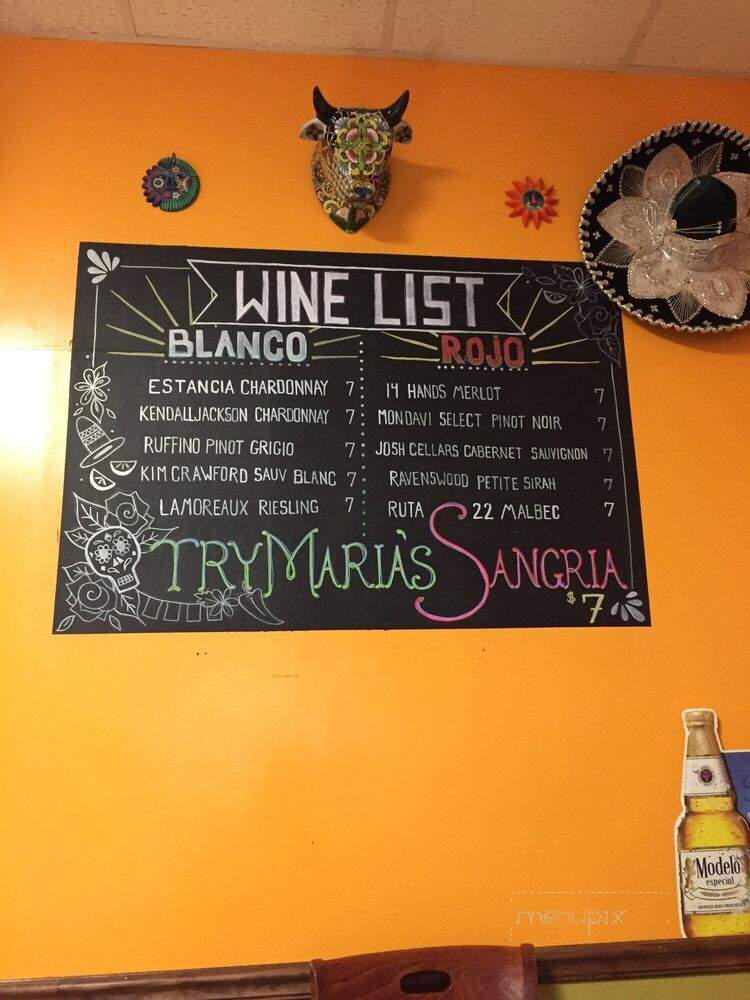 WINE LIST
BLANCO
ESTANCIA CHARDONNAY 7
KENDALLJACKSON CHARDONNAY 7
RUFFINO PINOT GRIGIO 7
KIM CRAWFORD SAUV BLANC 7
LAMOREAUX RIESLING 7
ROJO
14 HANDS MERLOT 7
MONDAVI SELECT PINOT NOIR 7
JOSH CELLARS CABERNET SAUVIGNON 7
RAVENSWOOD PETITE SIRAH 7
RUTA 22 MALBEC 7
TRY MARIA'S SANGRIA
$7
Modelo
especial
menupix